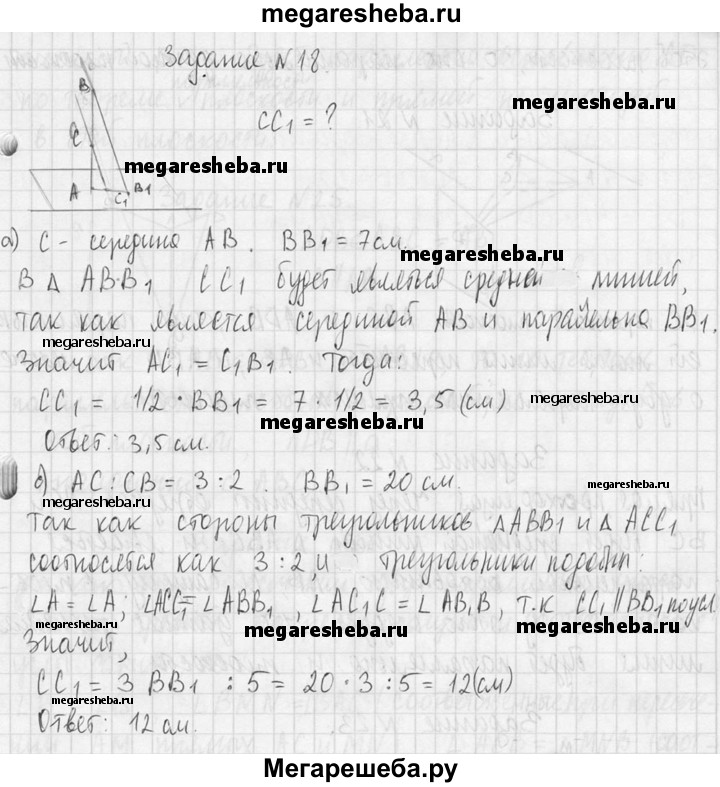 megaresheba.ru
Задание N 18.
megaresheba.ru
CC1 = ?
B
C
megaresheba.ru
A
C1
B1
а) C - середина AB. BB1 = 7 см.
megaresheba.ru
В Δ ABB1 CC1 будет являться средней линией,
так как является серединой AB и параллельна BB1.
megaresheba.ru
Значит AC1 = C1B1. Тогда:
CC1 = 1/2 · BB1 = 7 · 1/2 = 3,5 (см)
megaresheba.ru
megaresheba.ru
Ответ: 3,5 см.
б) AC : CB = 3 : 2. BB1 = 20 см.
megaresheba.ru
megaresheba.ru
Так как стороны треугольников ΔABB1 и Δ ACC1
соотносятся как 3 : 2, и треугольники подобны:
∠A = ∠A; ∠ACC1 = ∠ABB1, ∠AC1C = ∠AB1B, т.к CC1 || BB1 по усл.
megaresheba.ru
megaresheba.ru
megaresheba.ru
Значит,
CC1 = 3 BB1 : 5 = 20 · 3 : 5 = 12 (см)
megaresheba.ru
Ответ: 12 см.
Мегарешеба.ру